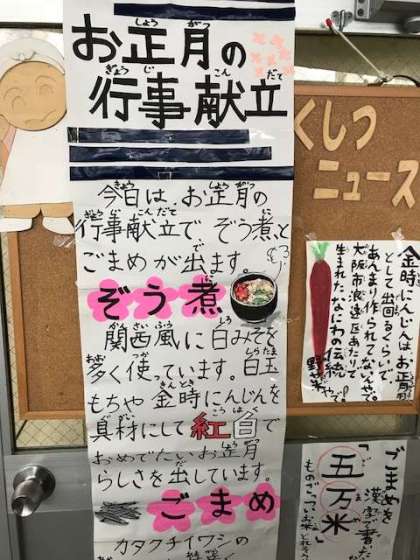 お正月の
行事献立
今日は、お正月の
行事献立で ぞう煮と
ごまめが出ます。
ぞう煮
関西風に白みそを
多く使っています。白玉
もちや 金時にんじんを
具材にして 紅白で
おめでたいお正月
らしさを出しています。
ごまめ
カタクチイワシの
くしつ
ニュース
金時にんじんはお正月用
として出回るくらいで、
あんまり作られてないんやで。
大阪市浪速区あたりで
生まれた、なにわの伝統
野菜やで。
ごまめを漢字で書いた
「五万米」